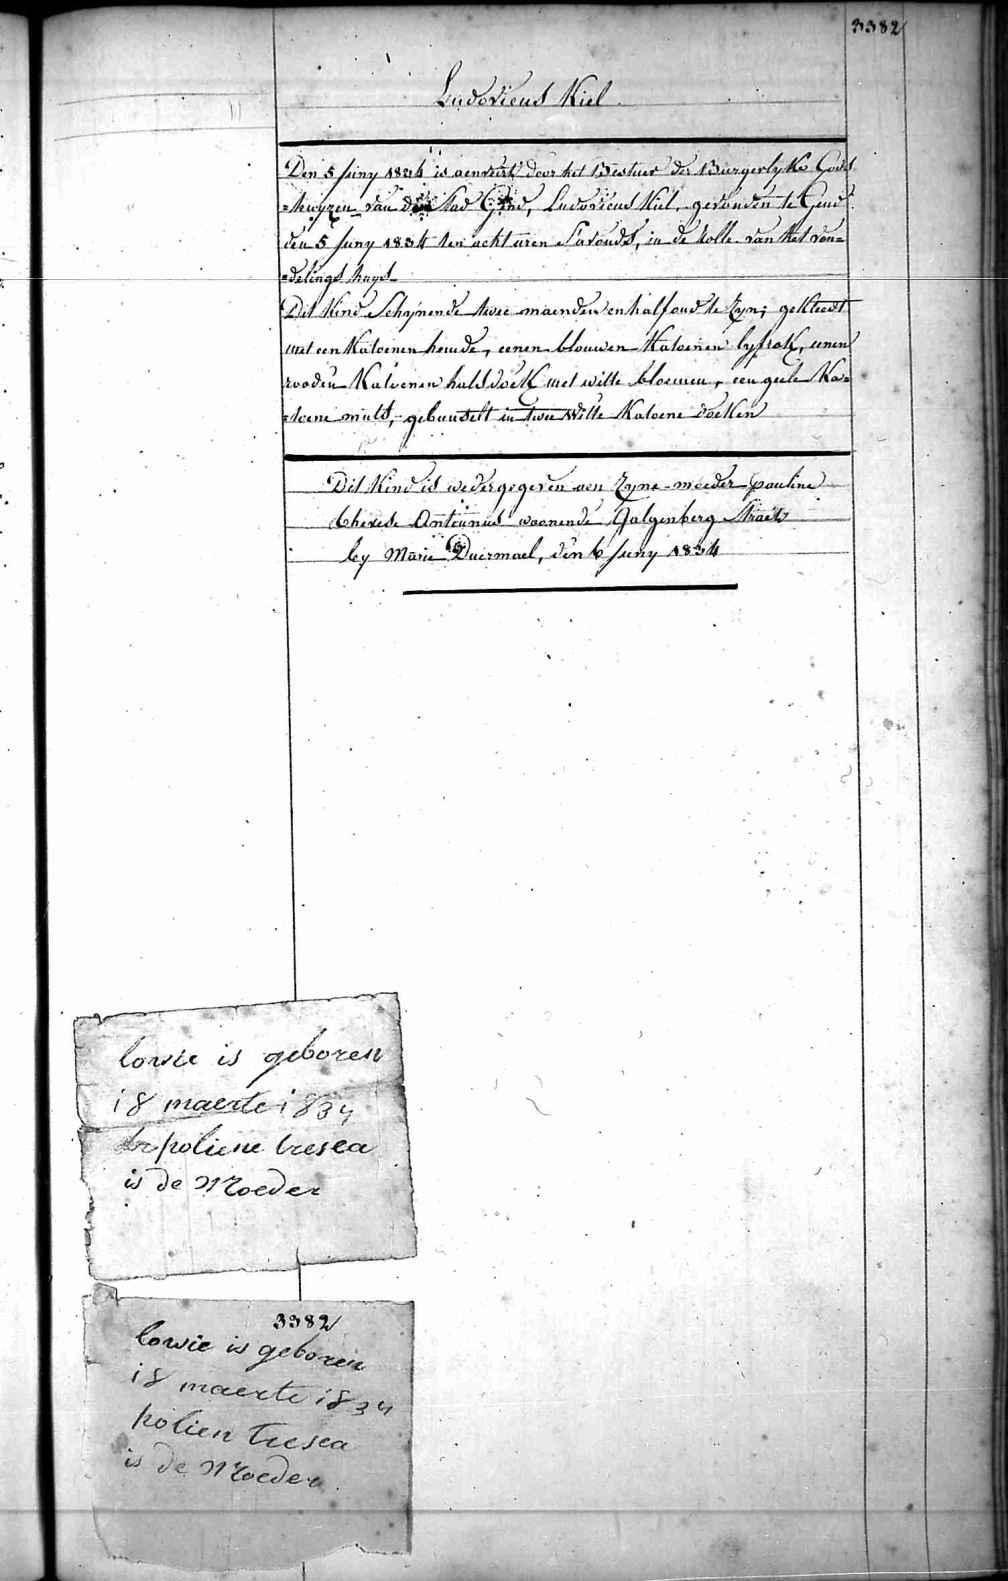 3382
Ludovicus Kiel
Den 5 Juny 1834 is aenveird door het Bestuur der Burgerlyke Gods
=huyzen van de Stad Gend, Ludovicus Kiel, gevonden te Gend
den 5 Juny 1834 ten acht uren S'avonds, in de Rolle van het von=
=delings huys
Dit Kind Schynende twee maenden en half oud te Zyn; gekleed
met een Katoenen hemde, eenen blouwen Katoenen lyfrok, eenen
rooden Katoenen halsdoek met witte bloemen, een geele Ka=
=toene muts, gebundelt in twee Witte Katoene doeken
Dit Kind is wedergegeven aen Zyne moeder pauline
therese Anteunis woonende Galgenberg Straete
by Marie Duermael, den 6 Juny 1834
lowie is geboren
18 maerte 1834
poliene tresea
is de Moeder
3382
lowie is geboren
18 maerte 1834
polien tresea
is de Moeder